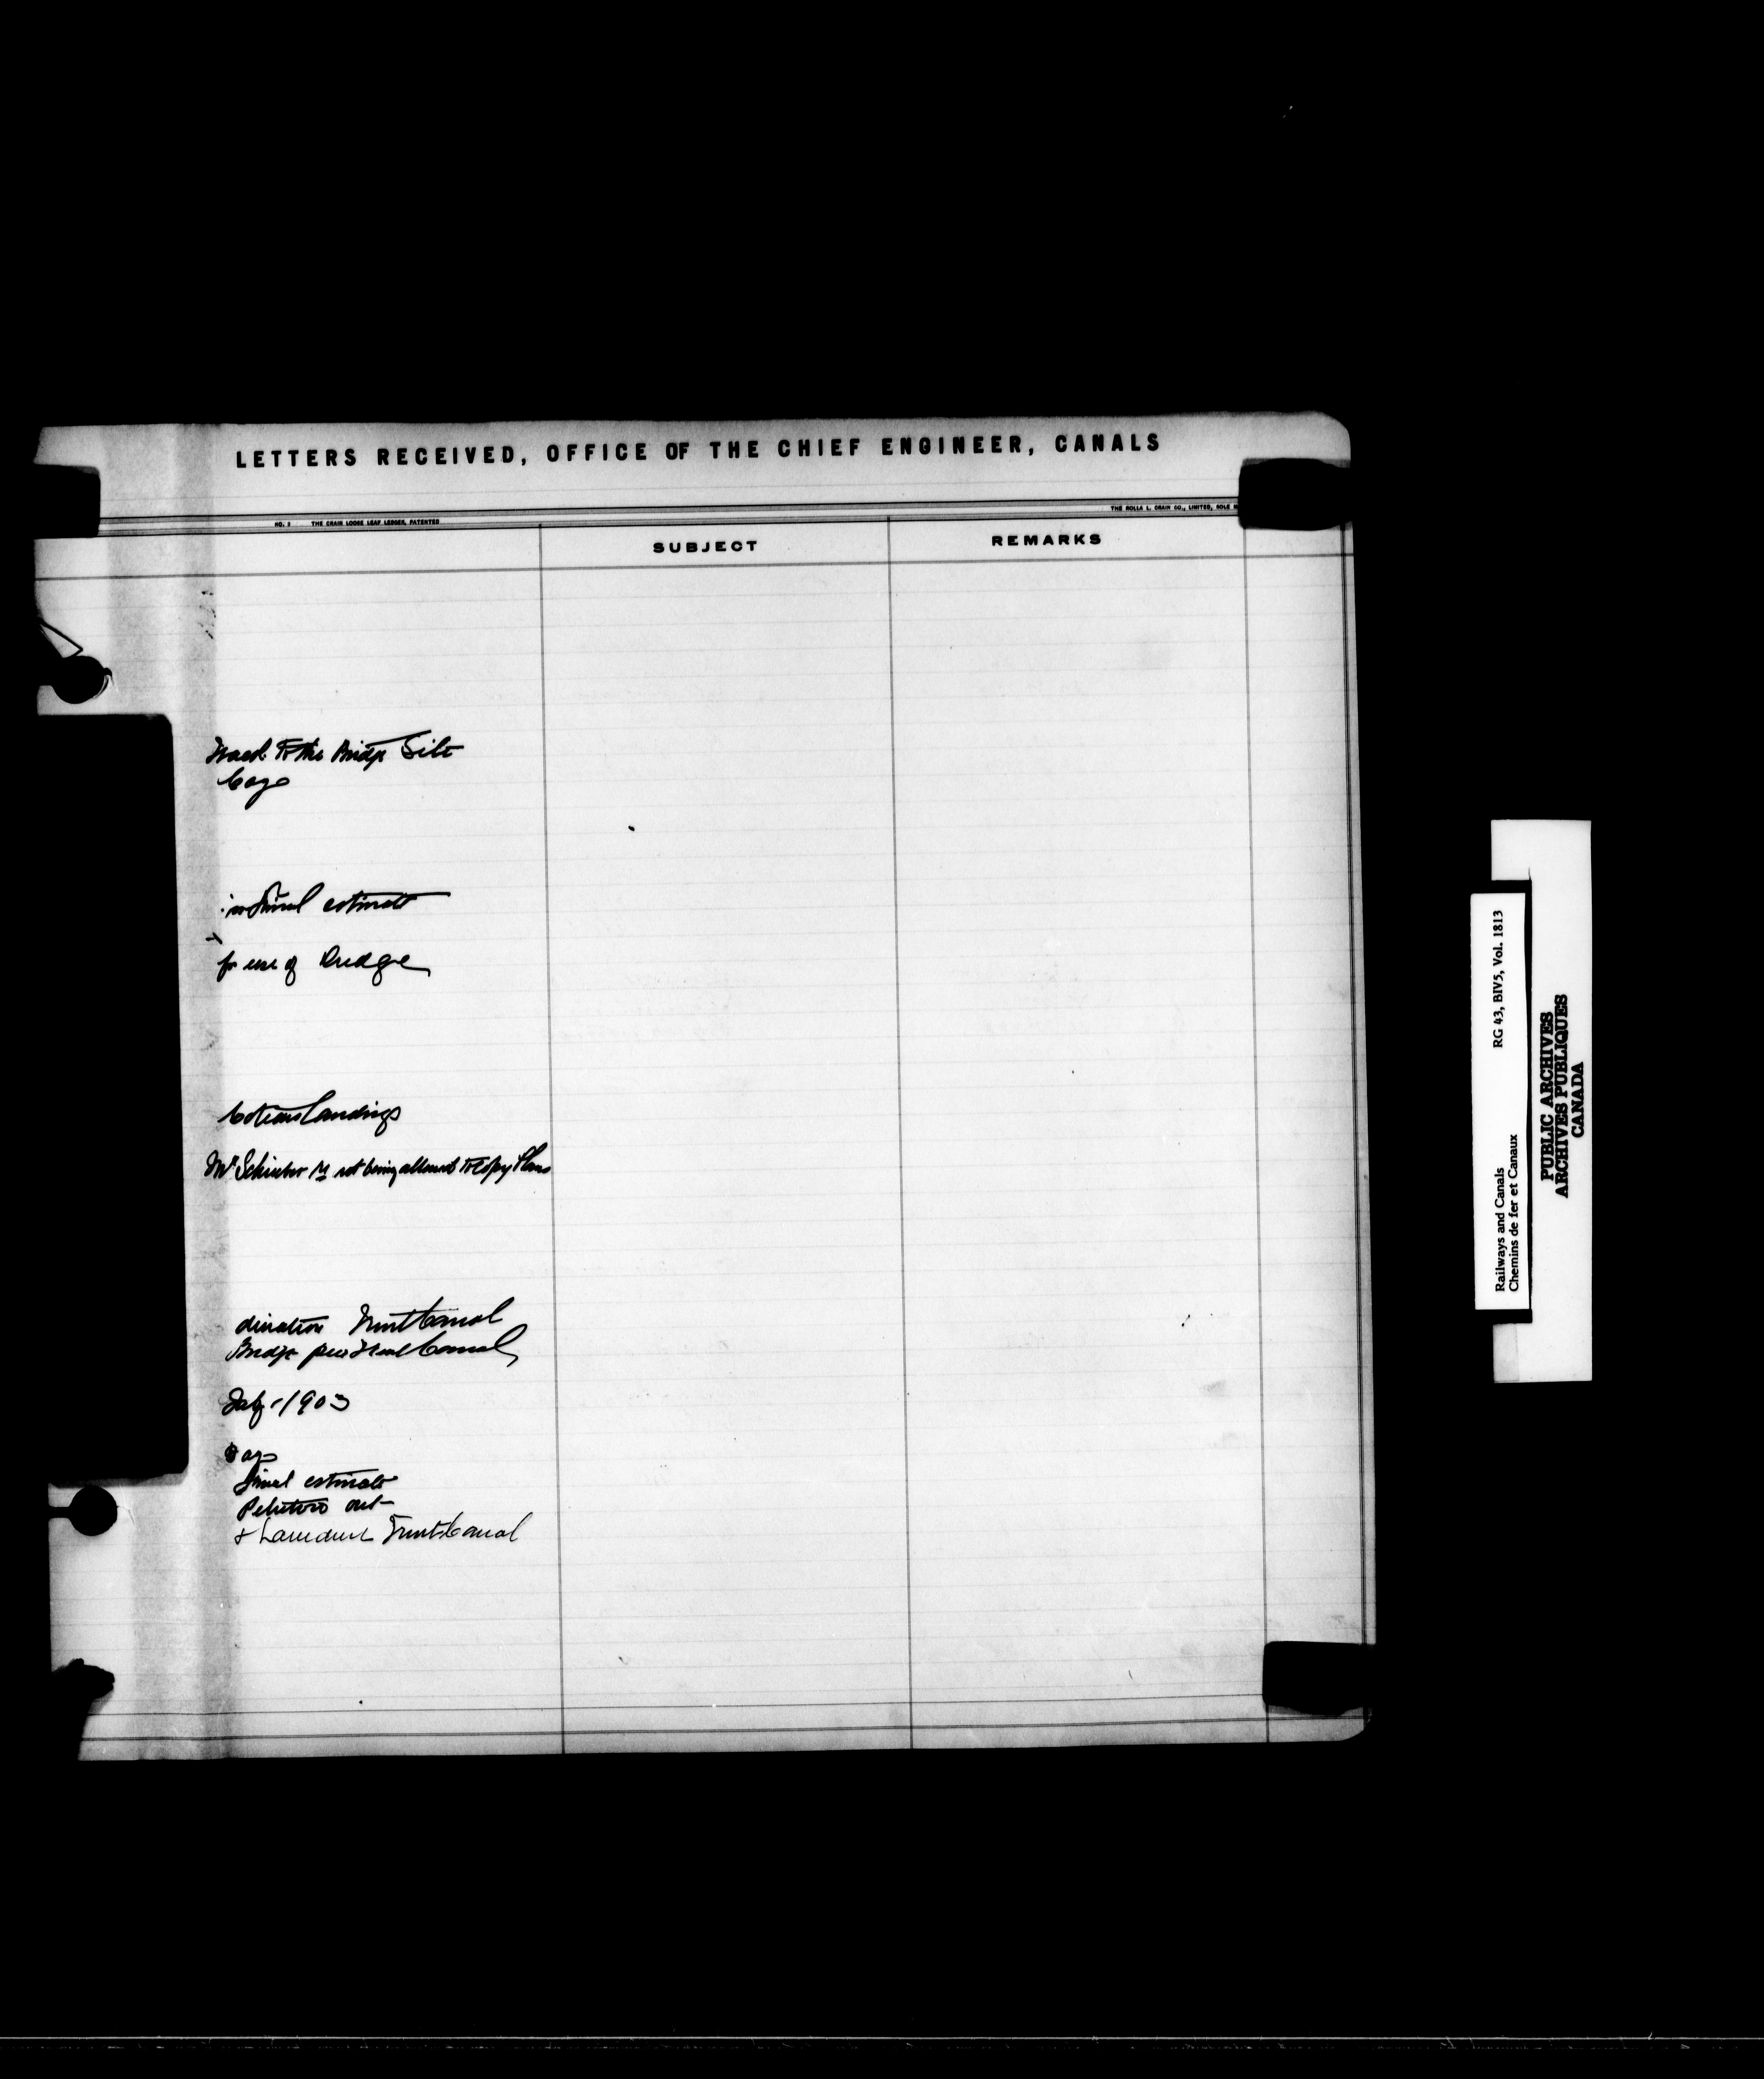 LETTERS RECEIVED, OFFICE OF THE CHIEF ENGINEER, CANALS
NO. 3 THE CRAIN LOOSE LEAF LEDGER, PATENTED
THE ROLLA L. CRAIN CO., LIMITED, SOLE M
SUBJECT
REMARKS
to the Bridge Site
final estimate
for use of Dredge
Coteau Landing
Mr Schreiber re not being allowed to Copy Plans
Trent Canal
Bridge Canal
1903
Final estimate
Trent Canal
Railways and Canals RG 43, BIV5, Vol. 1813
Chemins de fer et Canaux
PUBLIC ARCHIVES
ARCHIVES PUBLIQUES
CANADA